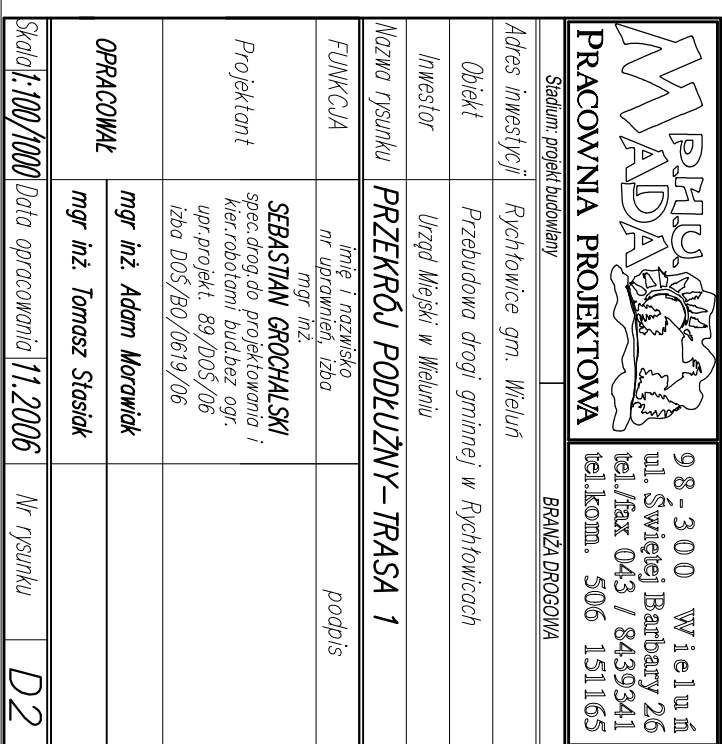 P.H.U.
MADA
PRACOWNIA PROJEKTOWA
98-300 Wieluń
ul. Świętej Barbary 26
tel./fax 043 / 8439341
tel.kom. 506 151165
Stadium: projekt budowlany BRANŻA DROGOWA
Adres inwestycji Rychłowice gm. Wieluń
Obiekt Przebudowa drogi gminnej w Rychłowicach
Inwestor Urząd Miejski w Wieluniu
Nazwa rysunku PRZEKRÓJ PODŁUŻNY-TRASA 1
FUNKCJA imię i nazwisko podpis
nr uprawnień, izba
Projektant mgr inż.
SEBASTIAN GROCHALSKI
spec.drog.do projektowania i
kier.robotami bud.bez ogr.
upr.projekt. 89/DOŚ/06
izba DOŚ/BO/0619/06
OPRACOWAŁ mgr inż. Adam Morawiak
mgr inż. Tomasz Stasiak
Skala 1:100/1000 Data opracowania 11.2006 Nr rysunku D2